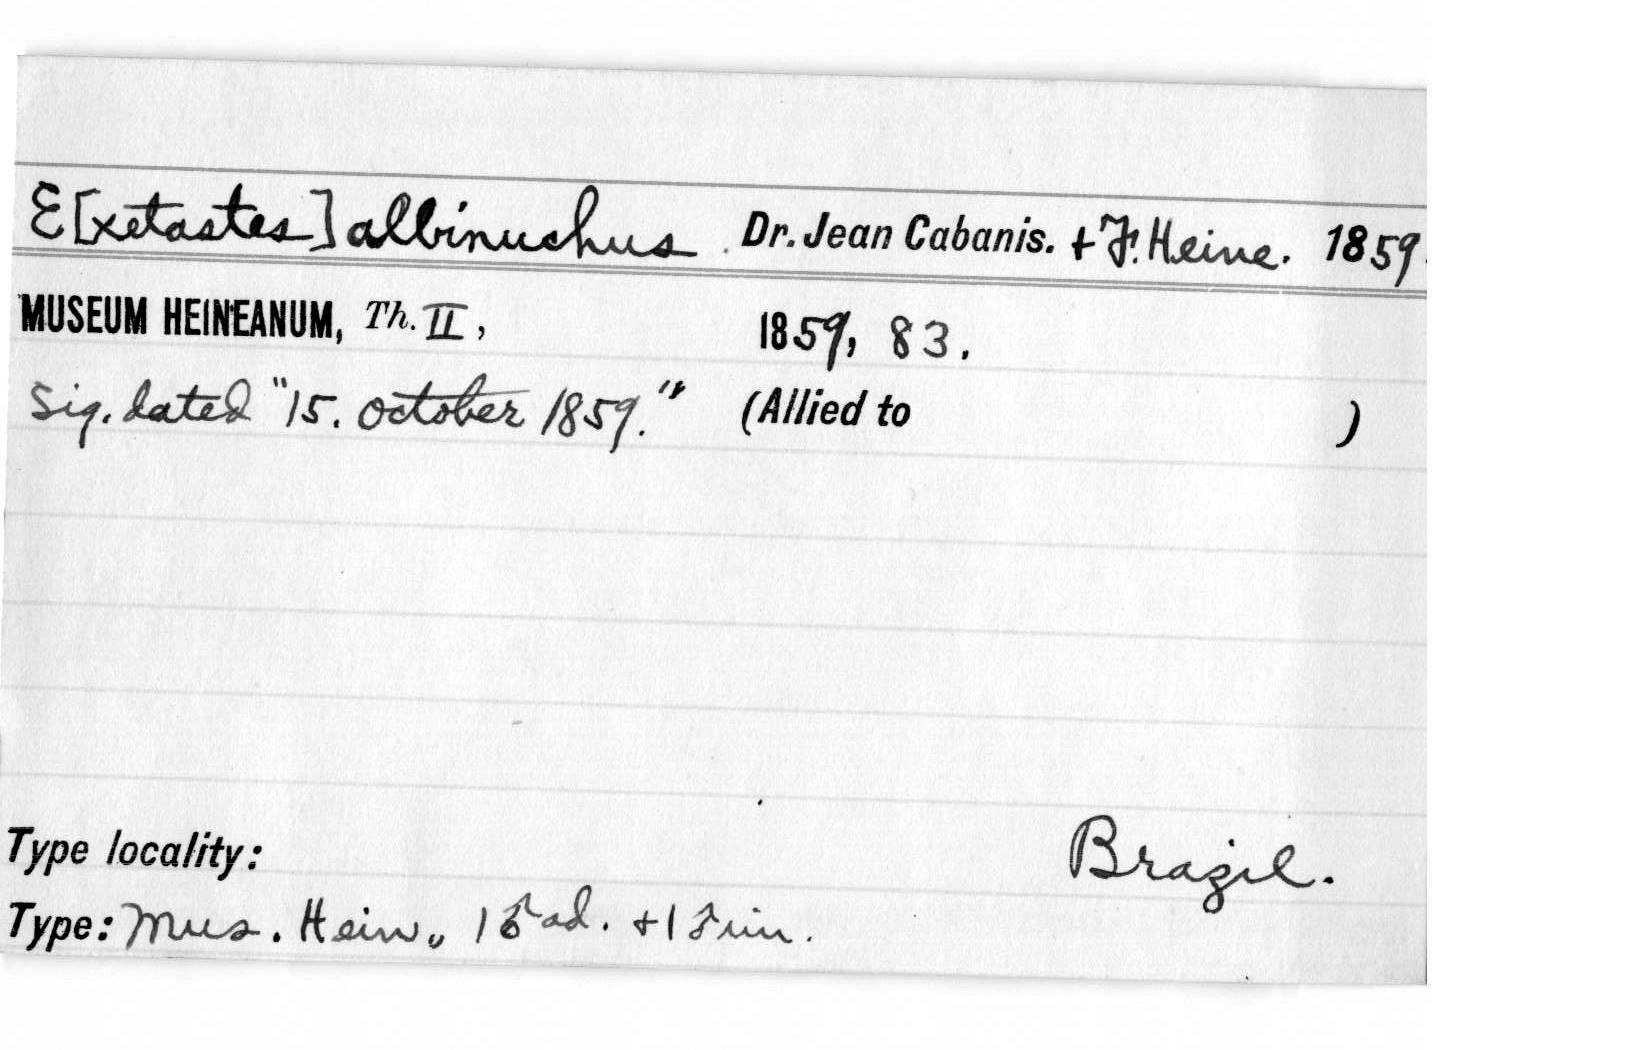 E[xetastes] albinuchus Dr. Jean Cabanis. + F. Heine. 1859.
MUSEUM HEINEANUM, Th. II, 1859, 83.
Sig. dated "15. October 1859." (Allied to )
Type locality: Brazil.
Type: Mus. Hein., 1 ♂ ad. + 1 ♂ juv.